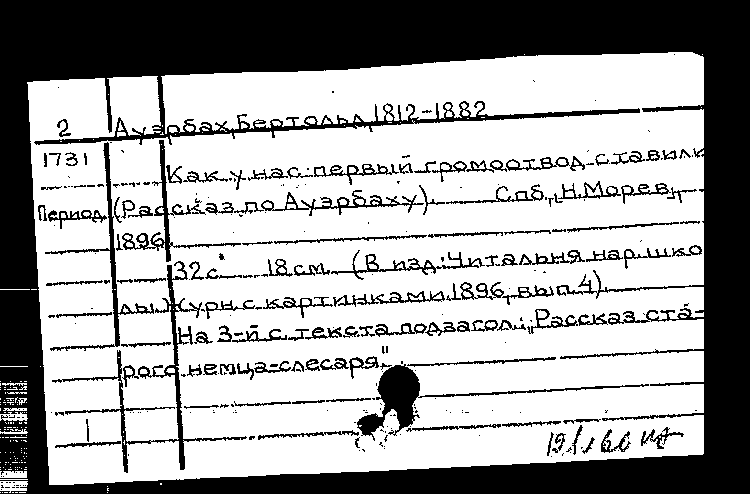 2 Ауэрбах, Бертольд, 1812-1882
1731 Как у нас первый громоотвод ставили
Период. (Рассказ по Ауэрбаху). Спб., "Н.Морев",
1896.
32с. 18см. (В изд.: Читальня нар. шко
лы. Журн. с картинками. 1896, вып. 4).
На 3-й с. текста подзагол.: "Рассказ ста-
рого немца-слесаря".
1